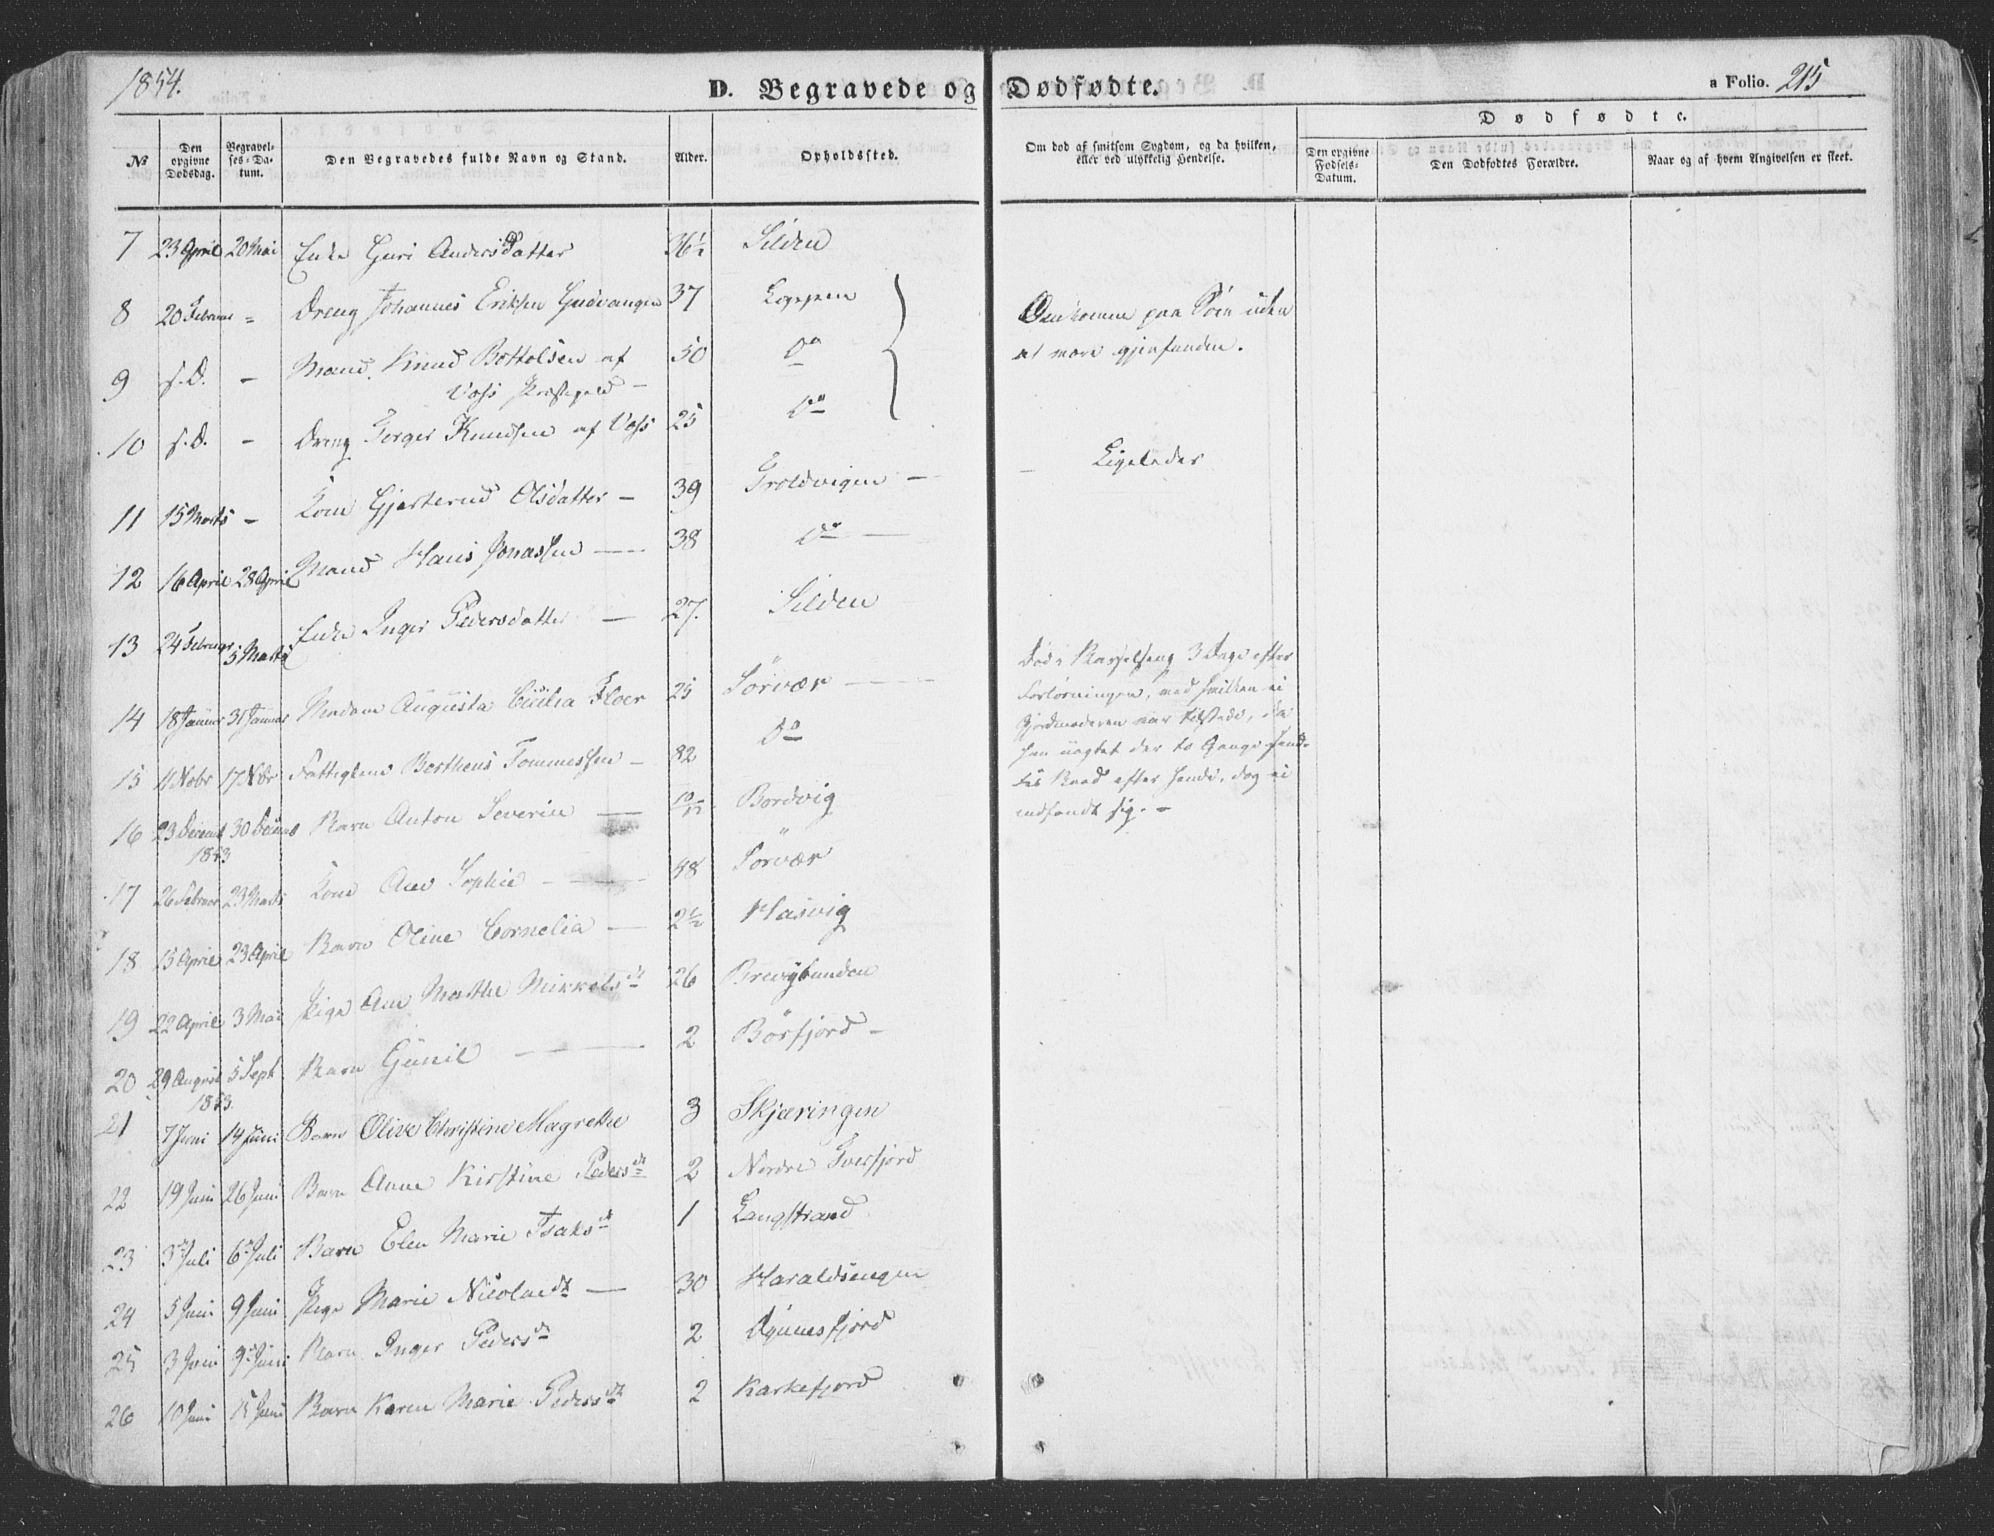 1854.
D. Begravede og Dødfødte.
a Folio. 215
Dødfødte.
No
Den opgivne Dødsdag.
Begravelses-Datum.
Den Begravedes fulde Navn og Stand.
Alder.
Opholdssted.
Om død af smitsom Sygdom, og da hvilken, eller ved ulykkelig Hendelse.
Den opgivne Fødsels-Datum.
Den Dødfødtes Forældre.
Naar og af hvem Angivelsen er skeet.
7 23 April 20 Mai Enke Guri Andersdatter 36½ Silden
8 20 Februar - Dreng Johannes Eriksen Gudvangen 37 Loppen Omkommen paa Søen uden
9 s.D. - Mand. Knud Bottolsen af 50 Do at være gjenfunden.
Voss Præstegjeld -
10 s.D. - Dreng Torger Knudsen af Voss 25 Do
11 15 Marts - Kone Gjertrud Olsdatter - 39 Groldvigen - - Ligeledes
12 16 April 28 April Mand Hans Jonassen 38 Do
13 24 Februar 5 Marts Enke Inger Pedersdatter 27. Silden
14 18 Januar 31 Januar Madam Augusta Cecilia Floer 25 Sørvær Død i Barselseng 3 Dage efter
Forløsningen, ved hvilken ei
Gjordmoderen var tilstede, da
hun uagtet der to Gange sendtes
Baad efter hende, dog ei
indfandt sig. -
15 11 Novbr 17 Nvbr Fattiglem Bertheus Tommessen - 82 Do
16 23 Decemb 1853 30 Decemb Barn Anton Severin 10/12 Bordvig
17 26 Februar 23 Marts Kone Ane Sophie 48 Sørvær
18 15 April 23 April Barn Oline Cornelia 2½ Hasvig
19 22 April 3 Mai Pige Ane Marthe Mikkelsdt 26 Brevigbunden
20 29 August 1853. 5 Sept Barn Gunil 2 Børfjord -
21 7 Juni 14 Juni Barn Olive Christine Magrethe 3 Skjæringen
22 19 Juni 26 Juni Barn Anne Kirstine Pedersdt 2 Nordre Tverfjord
23 3 Juli 6 Juli Barn Elen Marie Isaksdt 1 Langstrand
24 5 Juni 9 Juni Pige Marie Nicolaidt 30 Haraldsengen
25 3 Juni 9 Juni Barn Inger Pedersdt 2 Dønnesfjord
26 10 Juni 15 Juni Barn Karen Marie Pedersdt 2 Karkefjord